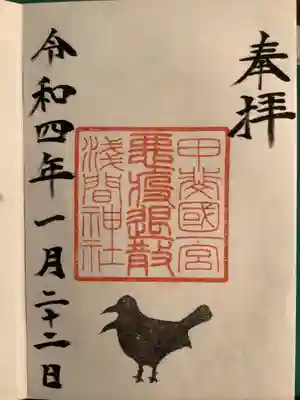 奉拝
甲斐國一宮
悪疫退散
淺間神社
令和四年一月二十二日